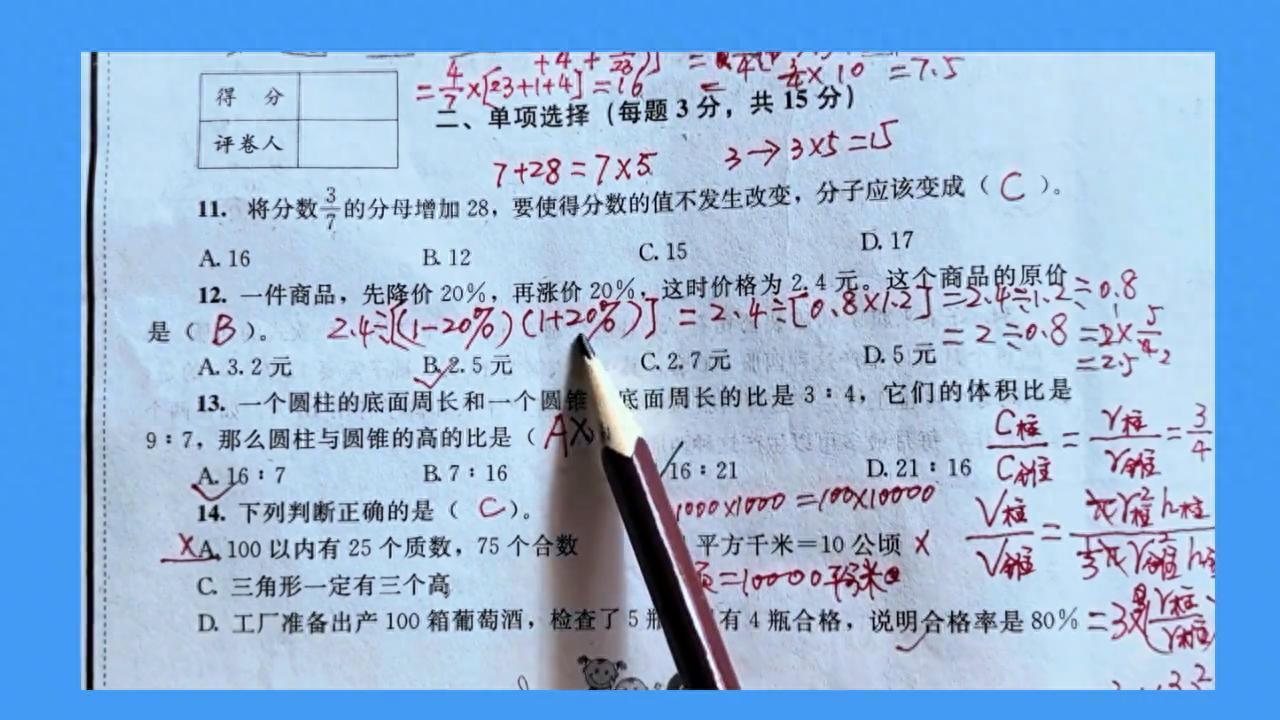 = 4/7 ×[23+1+4] =16
3/4 × 10 =7.5
得 分
评卷人
二、单项选择(每题3分，共15分)
7+28=7×5 3→3×5=15
11. 将分数3/7的分母增加28，要使得分数的值不发生改变，分子应该变成( C )。
A. 16 B. 12 C. 15 D. 17
12. 一件商品，先降价20%，再涨价20%，这时价格为2.4元。这个商品的原价
是( B )。 2.4÷[(1-20%)(1+20%)] = 2.4÷[0.8×1.2] =2.4÷1.2÷0.8
=2÷0.8
=2.5
A. 3.2元 B. 2.5元 C. 2.7元 D. 5元
13. 一个圆柱的底面周长和一个圆锥 底面周长的比是3∶4，它们的体积比是
9∶7，那么圆柱与圆锥的高的比是( A
A. 16∶7 B. 7∶16 16∶21 D. 21∶16
C柱/C锥 = r柱/r锥 = 3/4
14. 下列判断正确的是( C )。
1000×1000=100×10000
×A. 100以内有25个质数，75个合数 平方千米=10公顷 ×
V柱/V锥 =
C. 三角形一定有三个高
=10000平方米
D. 工厂准备出产100箱葡萄酒，检查了5瓶 有4瓶合格，说明合格率是80%